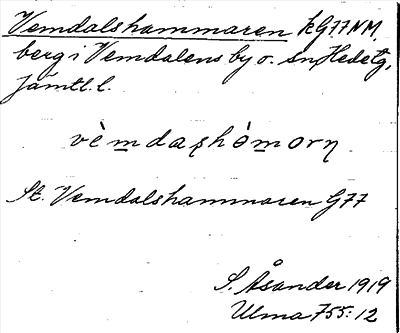 Vemdalshammaren kG77NM,
berg i Vemdalens by o. sn, Hede tg,
Jämtl. l.
vèm̲daʂhòm̲orn̥
St. Vemdalshammaren G77
S. Åsander 1919
Ulma 755:12